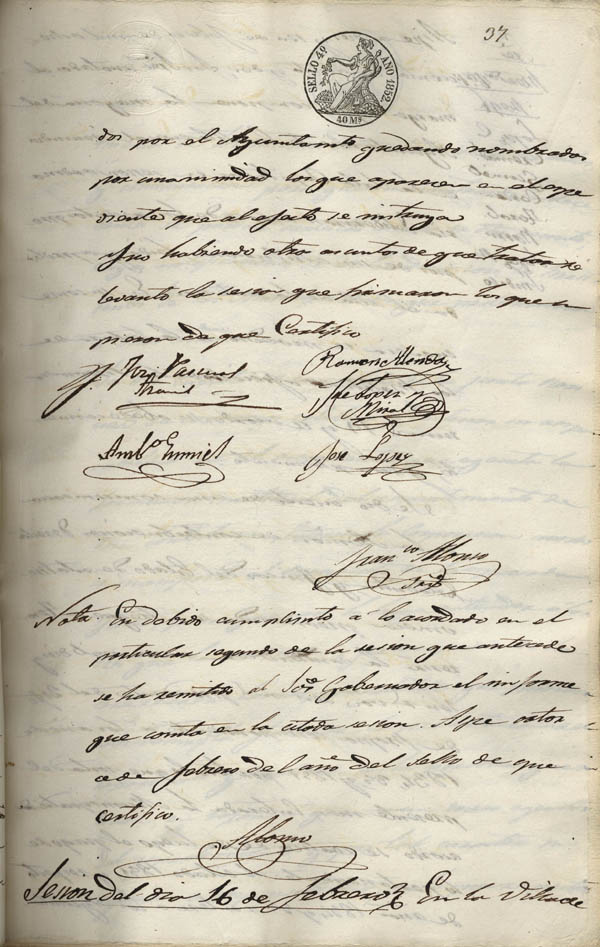 37.
SELLO 4º AÑO 1852.
40 Ms
dos por el Ayuntamto quedando nombrados
por unanimidad los que aparecen en el espe
diente que al efecto se instruya
Y no habiendo otro asuntos de que tratar se
levanto la sesion que firmaron los que su
pieron de que Certifico
José Pascual
Ramon Mendoz
José Lopez y
Miral
Ambo
José Lopez
Franco Alonso
Srio
Nota. En debido cumplimto á lo acordado en el
particular segundo de la sesion que antecede
se ha remitido al Sor Gobernador el informe
que consta en la citada sesion. Aspe cator
ce de febrero del año del sello de que
certifico.
Alonso
Sesion del dia 16 de febrero En la Villa de